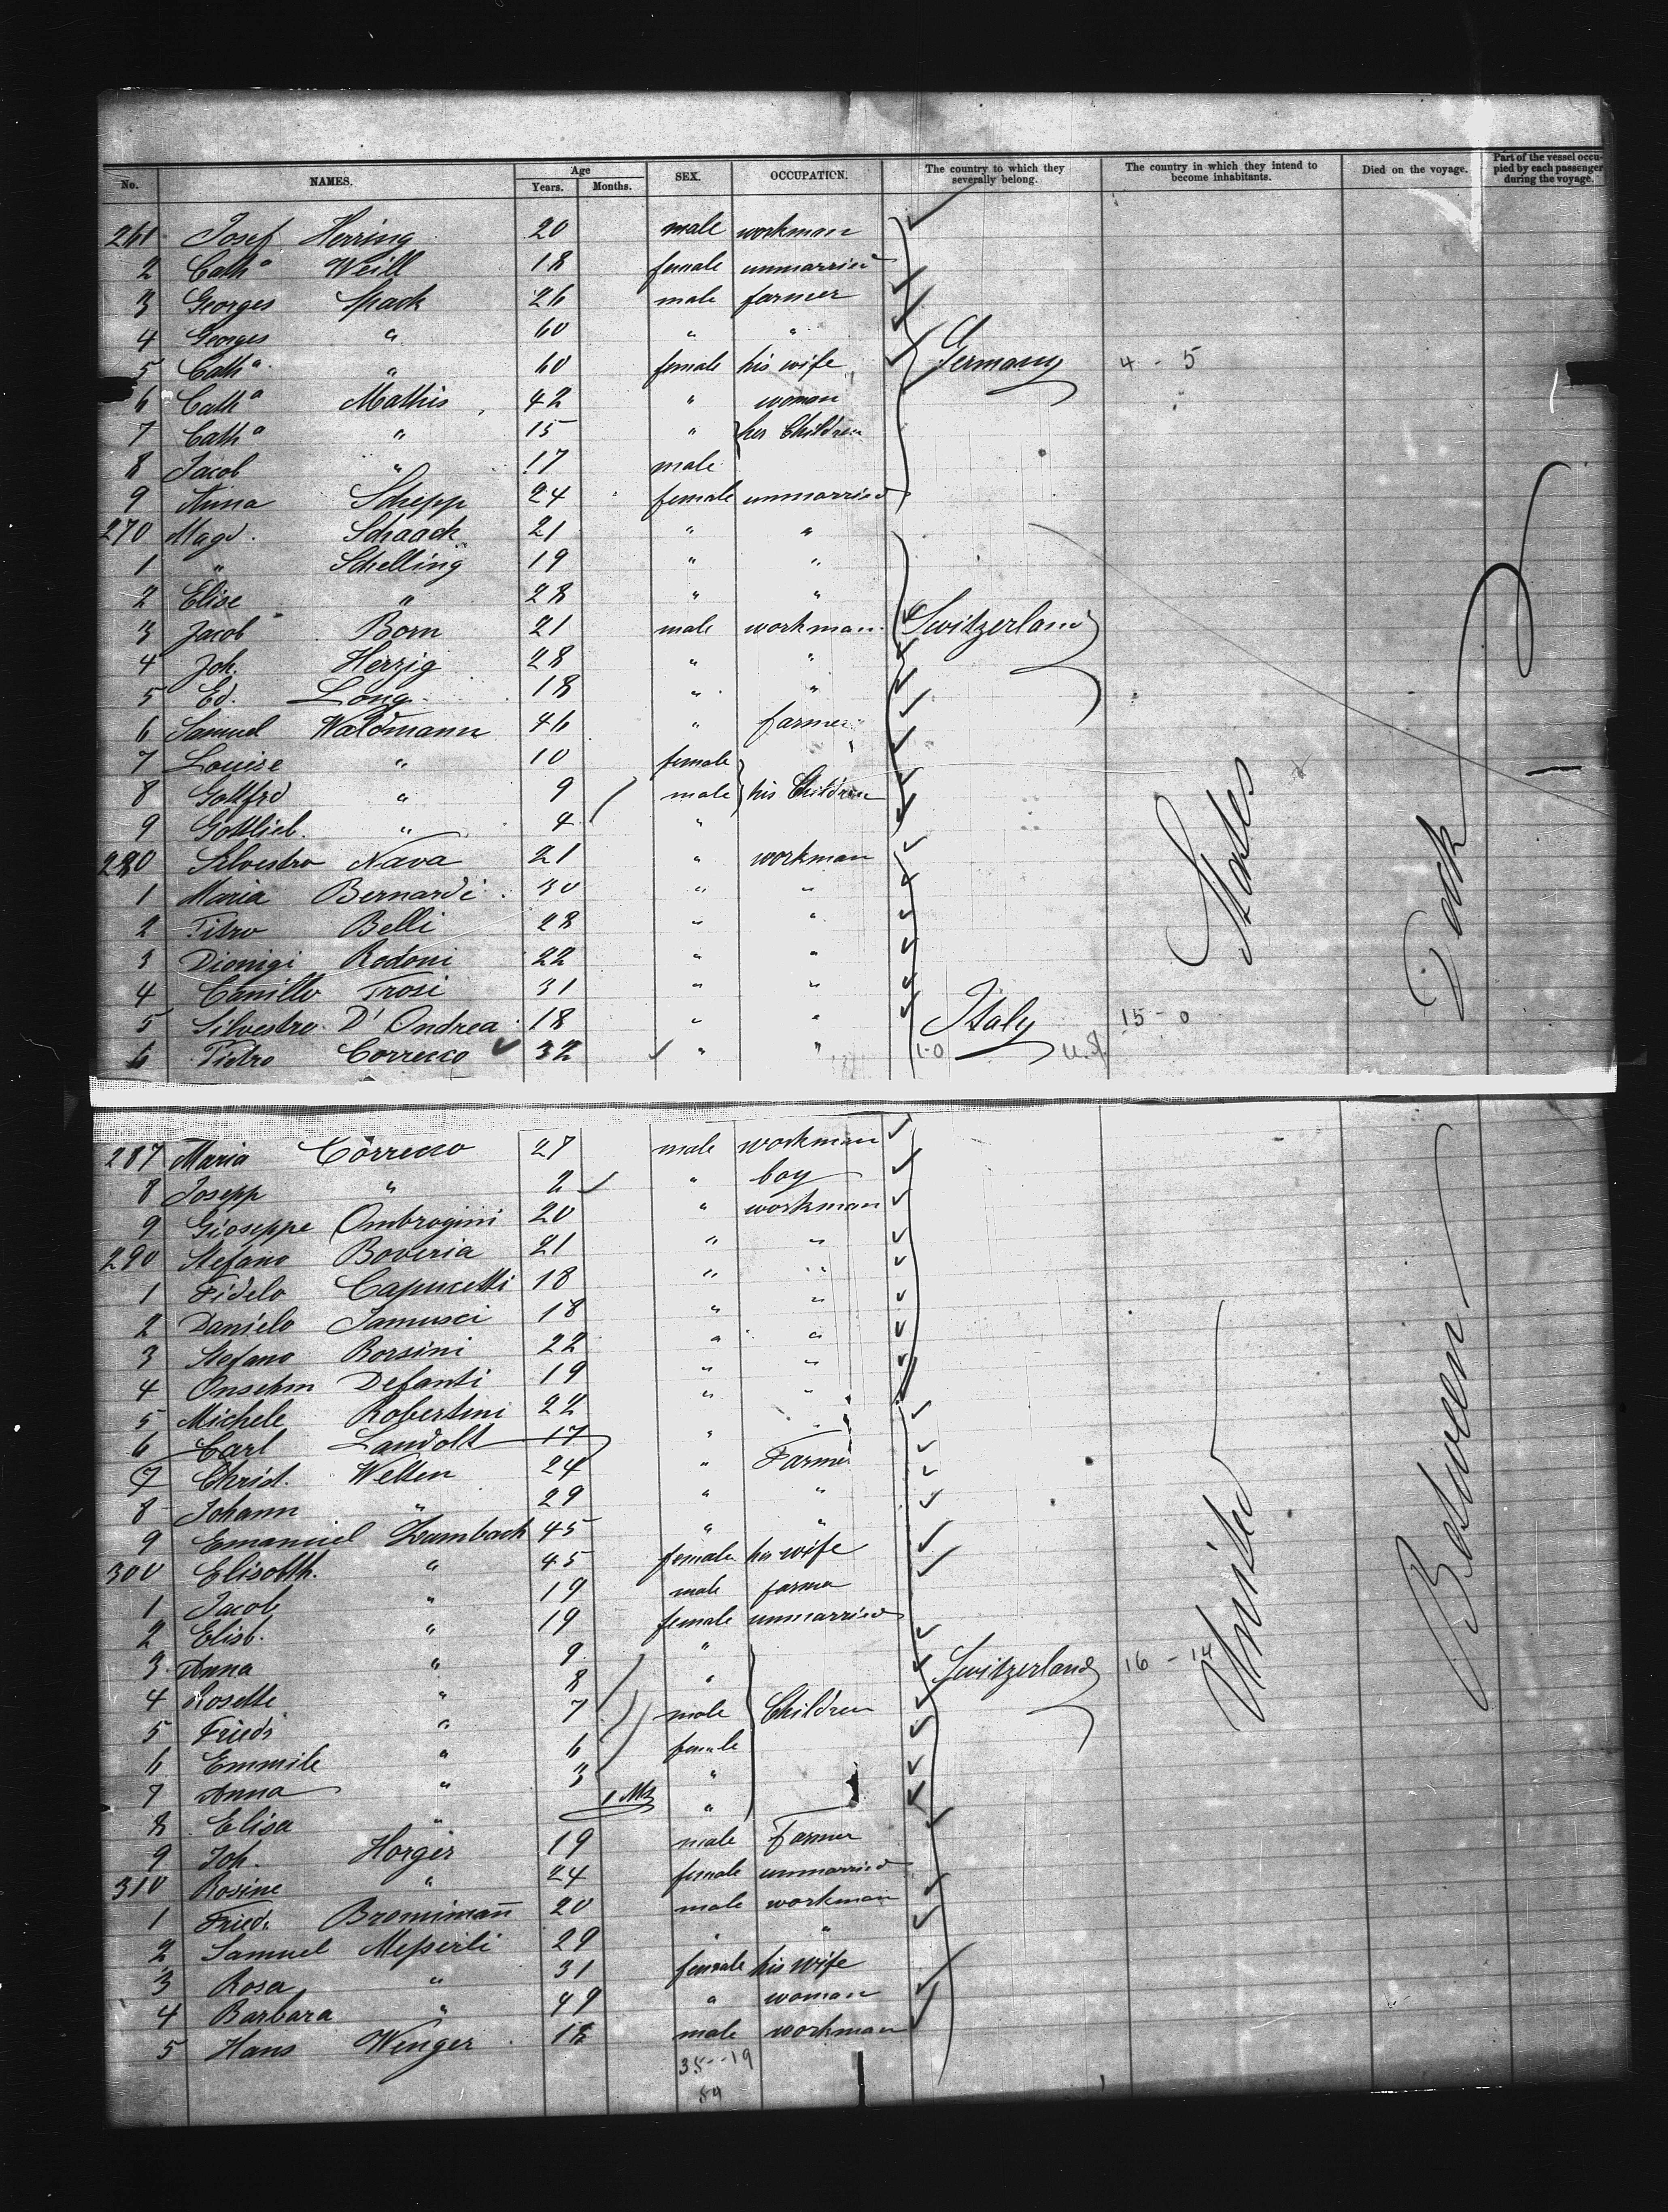 No. NAMES. Age Years. Months. SEX. OCCUPATION. The country to which they severally belong. The country in which they intend to become inhabitants. Died on the voyage. Part of the vessel occupied by each passenger during the voyage.
261 Josef Herring 20 male workman
2 Cath.a Weill 18 female unmarried
3 Georges Spack 26 male farmer
4 Georges " 60 " "
5 Cath.a " 60 female his wife Germany 4 - 5
6 Cath.a Mathis 42 " woman
7 Cath.a " 15 " her Children
8 Jacob " 17 male
9 Anna Schepp 24 female unmarried
270 Magd. Schaack 21 " "
1 " Schelling 19 " "
2 Elise " 28 " "
3 Jacob Born 21 male workman Switzerland
4 Joh. Herzig 28 " "
5 Ed. Long 18 " "
6 Samuel Waldmann 46 " farmer
7 Louise " 10 female
8 Gottfrd " 9 male his Children
9 Gottlieb. " 4 "
280 Silvestro Nava 21 " workman
1 Maria Bernardi 30 " "
2 Titro Belli 28 " "
3 Dionigi Rodoni 22 " "
4 Camillo Trosi 31 " "
5 Silvestro D'Andrea 18 " " Italy 15 - 0
6 Pietro Correcco 32 " " 1-0 U.S.
287 Maria Correcco 27 male workman
8 Josepp " 2 " boy
9 Gioseppe Ombrogini 20 " workman
290 Stefano Boveria 21 " "
1 Fidelo Capucetti 18 " "
2 Danielo Jamusci 18 " "
3 Stefano Borsini 22 " "
4 Onselm Defanti 19 " "
5 Michele Robertini 22 " "
6 Carl Landolt 17 "
7 Christ. Welten 24 " Farmer
8 Johann " 29 " "
9 Emanuel Zumbach 45 " "
300 Elisabth. " 45 female his wife
1 Jacob " 19 male farmer
2 Elisb. " 19 female unmarried
3 Anna " 9 " Switzerland 16 - 14
4 Rosette " 8 "
5 Friedr " 7 male Children
6 Emmile " 6 female
7 Anna " 3 "
8 Elisa " 1 Mt "
9 Joh. Horger 19 male Farmer
310 Rosine " 24 female unmarried
1 Friedr. Bronimann 20 male workman
2 Samuel Messerli 29 " "
3 Rosa " 31 female his wife
4 Barbara " 49 " woman
5 Hans Wenger 18 male workman
35--19
54
United States
Between Deck